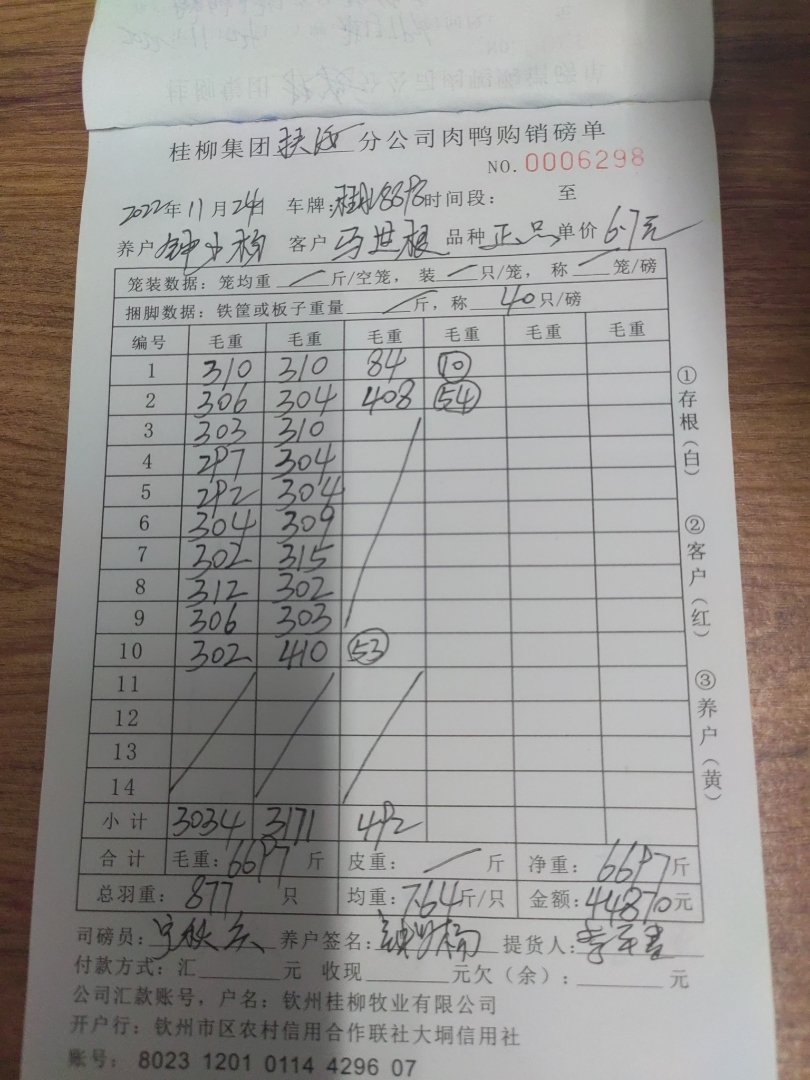 桂柳集团 分公司肉鸭购销磅单
NO. 0006298
2022年11月24日 车牌: 时间段: 至
养户 钟 客户 马世根 品种 正品 单价 6.7元
笼装数据: 笼均重 斤/空笼, 装 只/笼, 称 笼/磅
捆脚数据: 铁筐或板子重量 斤, 称 40 只/磅
编号 毛重 毛重 毛重 毛重 毛重 毛重
1 310 310 84 10
2 306 304 408 54
3 303 310
4 297 304
5 292 304
6 304 309
7 302 315
8 312 302
9 306 303
10 302 410 53
11
12
13
14
小计 3034 3171 492
合计 毛重: 6697 斤 皮重: 斤 净重: 6697斤
总羽重: 877 只 均重: 7.64斤/只 金额: 44870元
司磅员: 养户签名: 提货人: 李
付款方式: 汇 元 收现 元欠(余): 元
公司汇款账号, 户名: 钦州桂柳牧业有限公司
开户行: 钦州市区农村信用合作联社大垌信用社
账号: 8023 1201 0114 4296 07
①存根(白) ②客户(红) ③养户(黄)